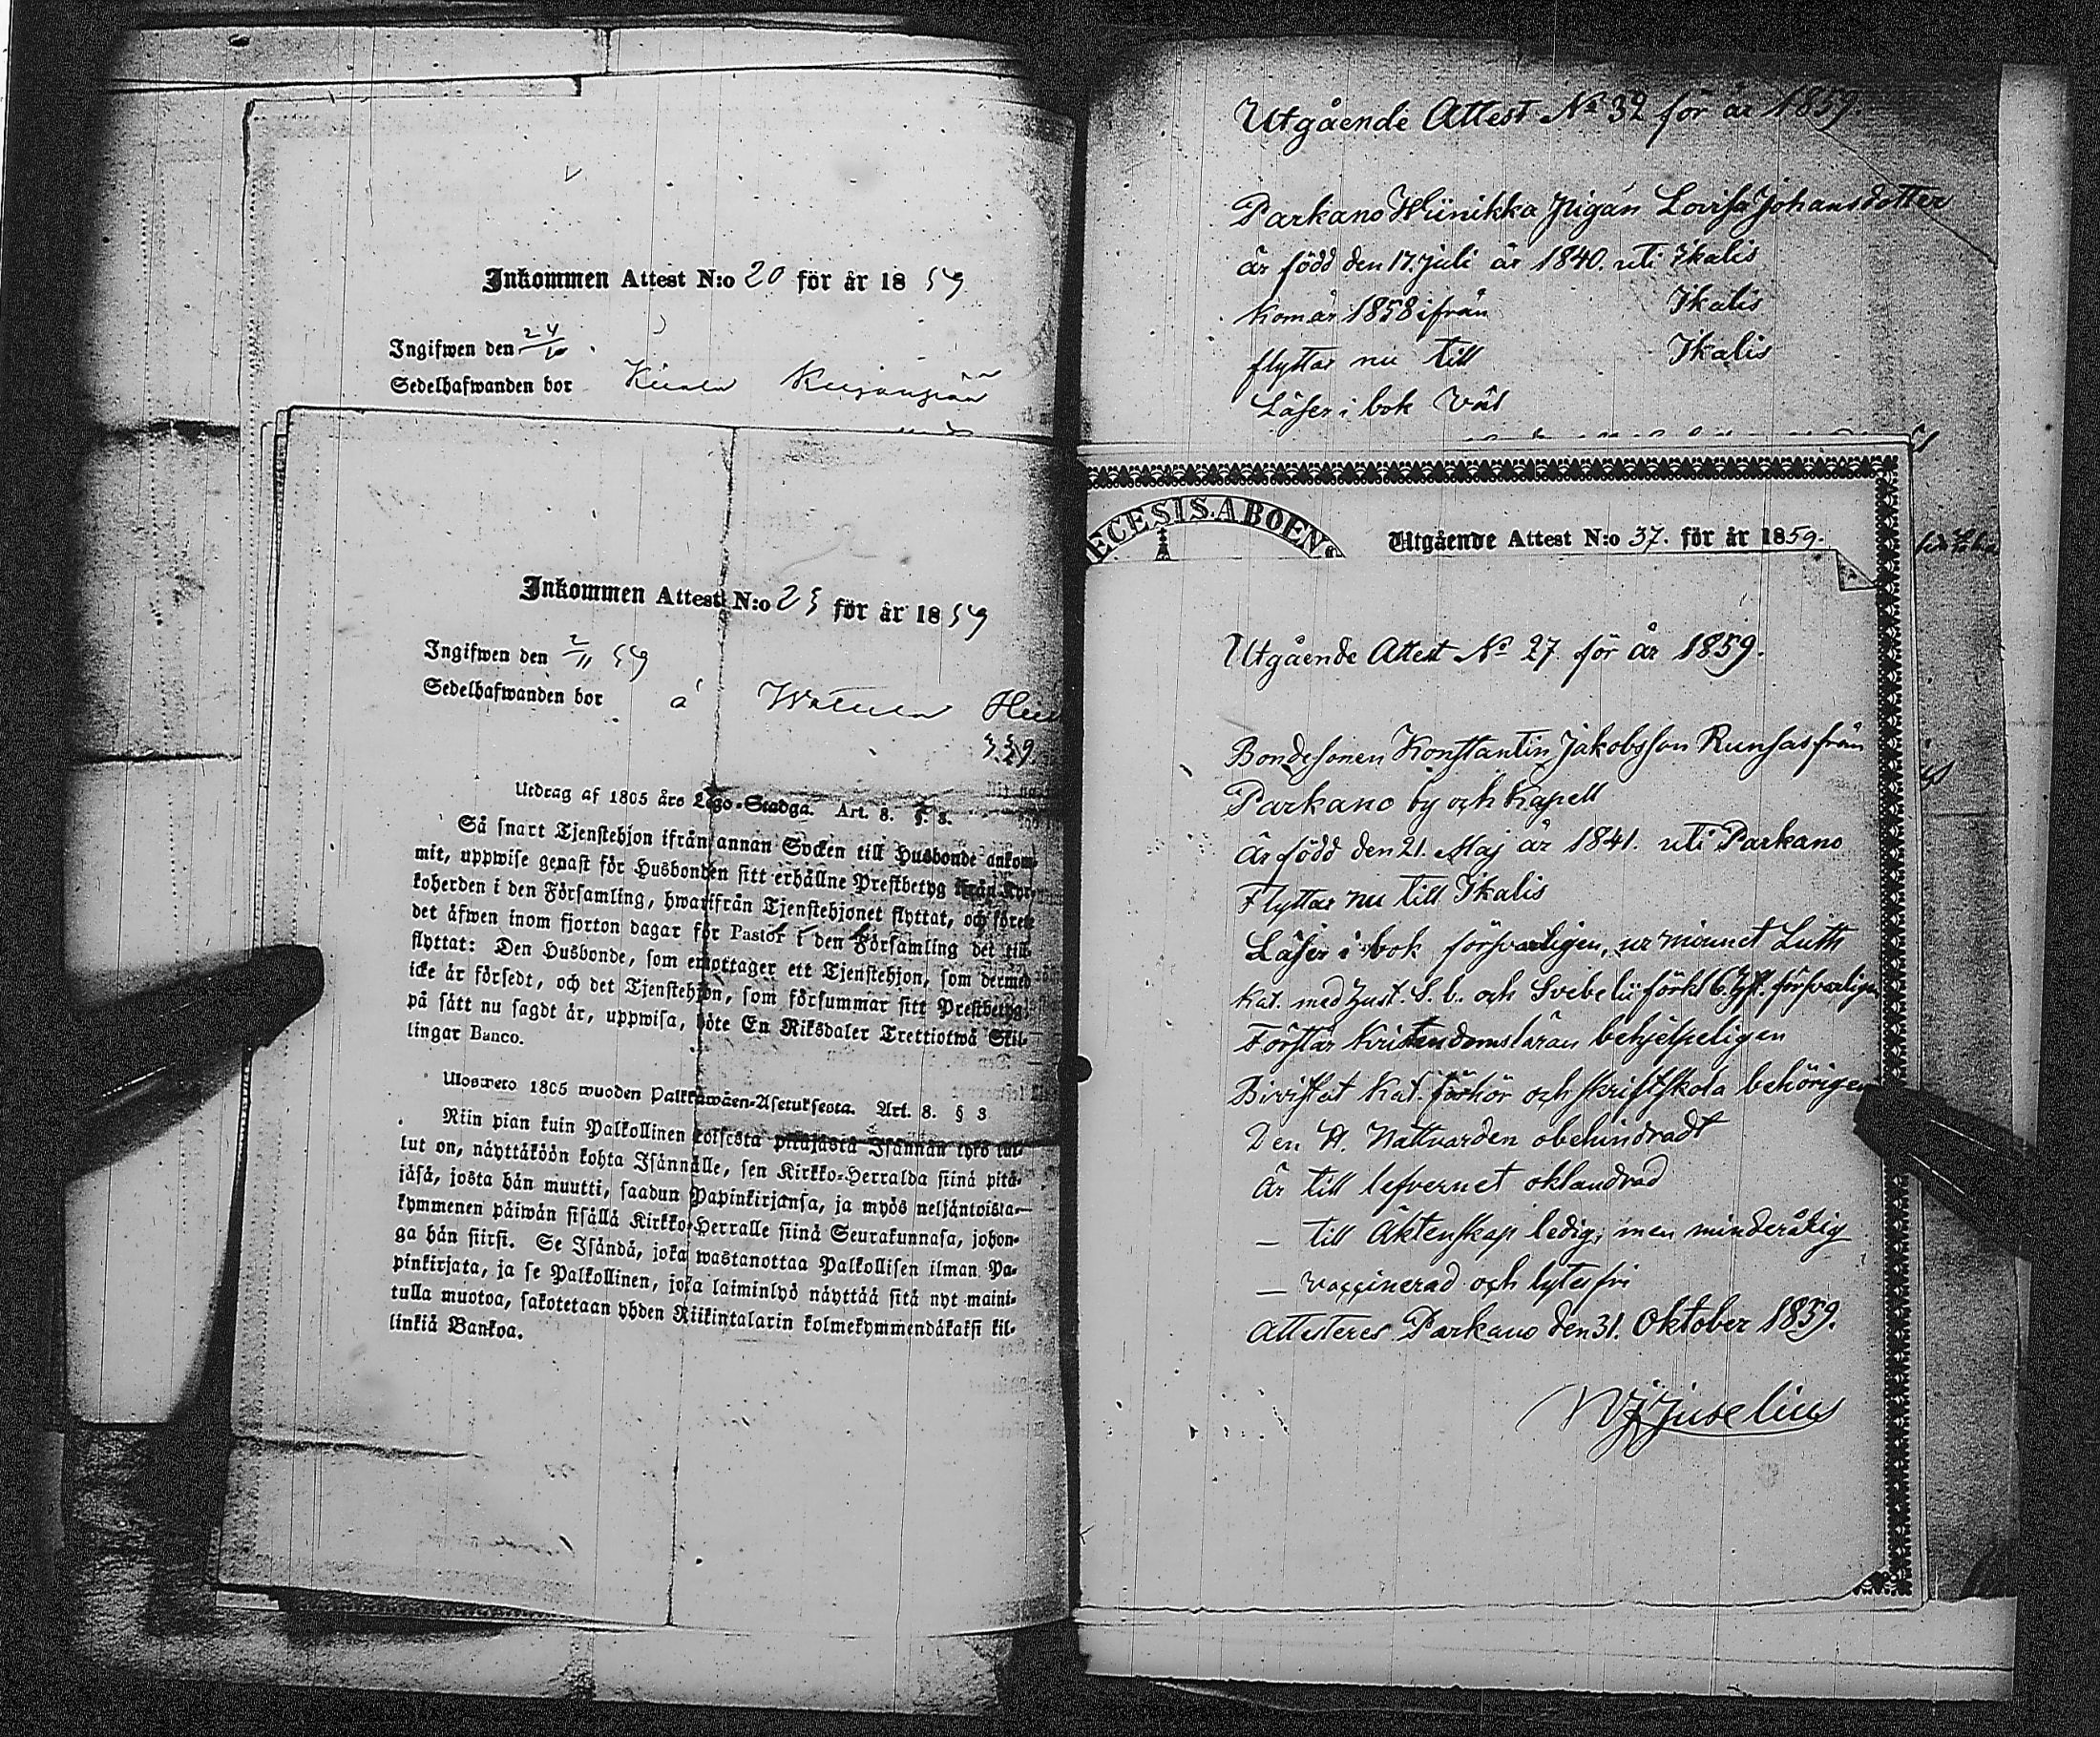 Inkommen Attest N:o 20 för år 1859
Ingifwen den 24/10
Sedelhafwanden bor
Inkommen Attest N:o 25 för år 1859
Ingifwen den 2/11 59
Sedelhafwanden bor å
539.
Utdrag af 1805 års Lego-Stadga. Art. 8. §. 3.
Så snart Tjenstehjon ifrån annan Socken till Husbonde ankom-
mit, uppwise genast för Husbonden sitt erhållne Prestbetyg ifrån Kyr-
koherden i den Församling, hwarifrån Tjenstehjonet flyttat, och förete
det äfwen inom fjorton dagar för Pastor i den Församling det till-
flyttat: Den Husbonde, som emottager ett Tjenstehjon, som dermed
icke är försedt, och det Tjenstehjon, som försummar sitt Prestbetyg,
på sätt nu sagdt är, uppwisa, böte En Riksdaler Trettiotwå Skil-
lingar Banco.
Ulosweto 1805 wuoden Palkkawäen-Asetuksesta. Art. 8. § 3
Niin pian kuin Palkollinen toisesta pitäjästä Isännän tykö tul-
lut on, näyttäköön kohta Isännälle, sen Kirkko-Herralda siinä pitä-
jäsä, josta hän muutti, saadun Papinkirjansa, ja myös neljäntoista-
kymmenen päiwän sisällä Kirkko-Herralle siinä Seurakunnasa, johon-
ga hän siirsi. Se Isändä, joka wastanottaa Palkollisen ilman Pa-
pinkirjata, ja se Palkollinen, joka laiminlyö näyttää sitä nyt maini-
tulla muotoa, sakotetaan yhden Riikintalarin kolmekymmendäkaksi kil-
linkiä Bankoa.
Utgående Attest No 32 för år 1859.
Parkano Hiinikka Pigan Lovisa Johansdotter
är född den 17. Juli år 1840. uti Ikalis
kom år 1858 ifrån Ikalis
flyttar nu till Ikalis
Läser i bok väl
ECESIS. ABOEN
Utgående Attest N:o 37. för år 1859.
Utgående Attest No 27. för år 1859.
Bondesonen Konstantin Jakobsson Runsas från
Parkano by och kapell
är född den 21. Maj år 1841. uti Parkano
Flyttar nu till Ikalis
Läser i bok försvarligen, ur minnet Luth
Kat. med Hust. S. b. och Svebelii förkl 6 Hst. försvarligen
Förstår Kristendomsläran behjelpeligen
Bivistat Kat. förhör och skriftskola behörigen
Den H. Nattvarden obehindradt
Är till lefvernet oklandrad
— till Äktenskap ledig, men minderårig
— vaccinerad och lytesfri
Attesteres Parkano den 31. Oktober 1859.
Juselius